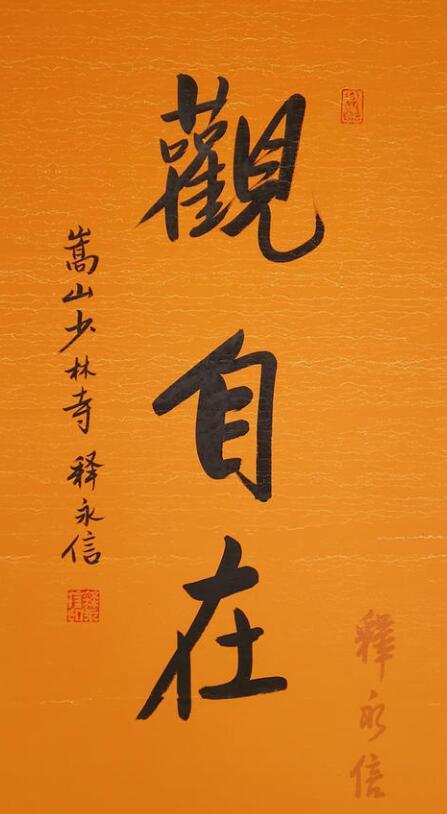 觀自在
嵩山少林寺 释永信
釋永信